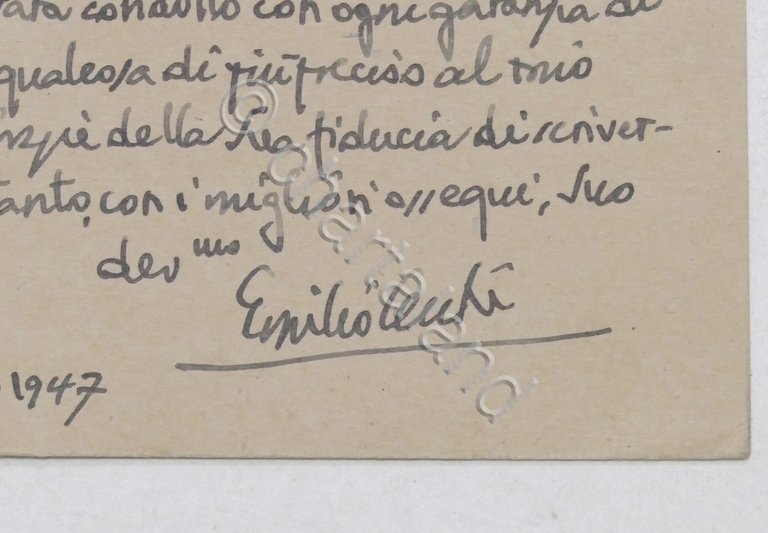 condotto con ogni garanzia di
qualcosa di più preciso al mio
della Sua fiducia di scriver-
con i migliori ossequi, Suo
dev mo
Emilio Cecchi
1947
© chartaland